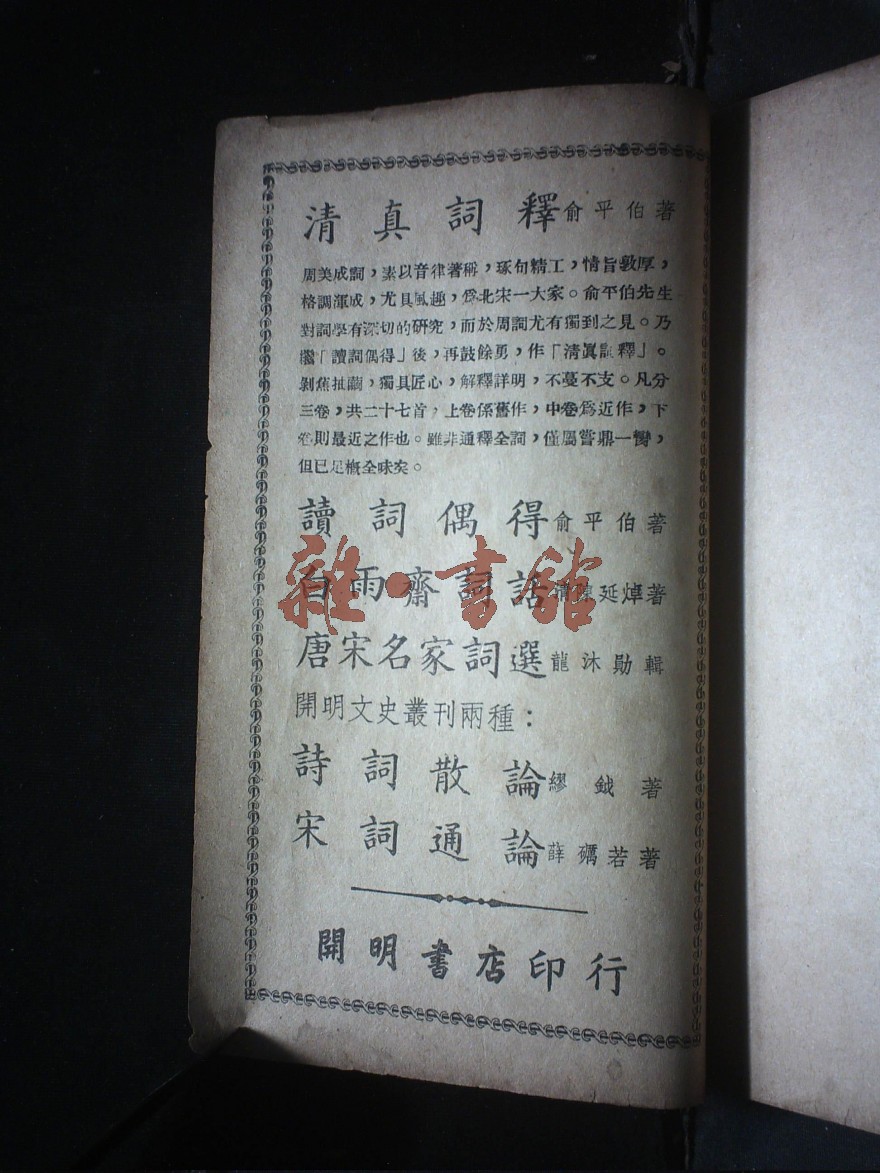 清真詞釋 俞平伯著
周美成詞，素以音律著稱，琢句精工，情旨敦厚，
格調渾成，尤具風趣，爲北宋一大家。俞平伯先生
對詞學有深切的研究，而於周詞尤有獨到之見。乃
繼「讀詞偶得」後，再鼓餘勇，作「清眞詞釋」。
剝焦抽繭，獨具匠心，解釋詳明，不蔓不支。凡分
三卷，共二十七首，上卷係舊作，中卷爲近作，下
卷則最近之作也。雖非通釋全詞，僅屬嘗鼎一臠，
但已足概全味矣。
讀詞偶得 俞平伯著
白雨齋詞話 清陳廷焯著
雜·書館
唐宋名家詞選 龍沐勛輯
開明文史叢刊兩種：
詩詞散論 繆鉞著
宋詞通論 薛礪若著
開明書店印行